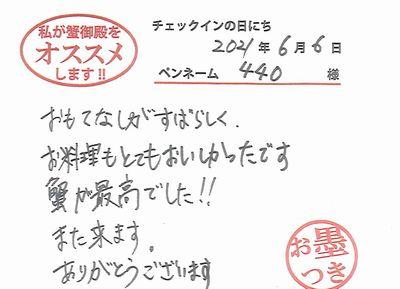 私が蟹御殿を
オススメ
します!!
チェックインの日にち
2021年6月6日
ペンネーム 440 様
おもてなしがすばらしく、
お料理もとてもおいしかったです
蟹が最高でした!!
また来ます。
ありがとうございます
お墨
つき